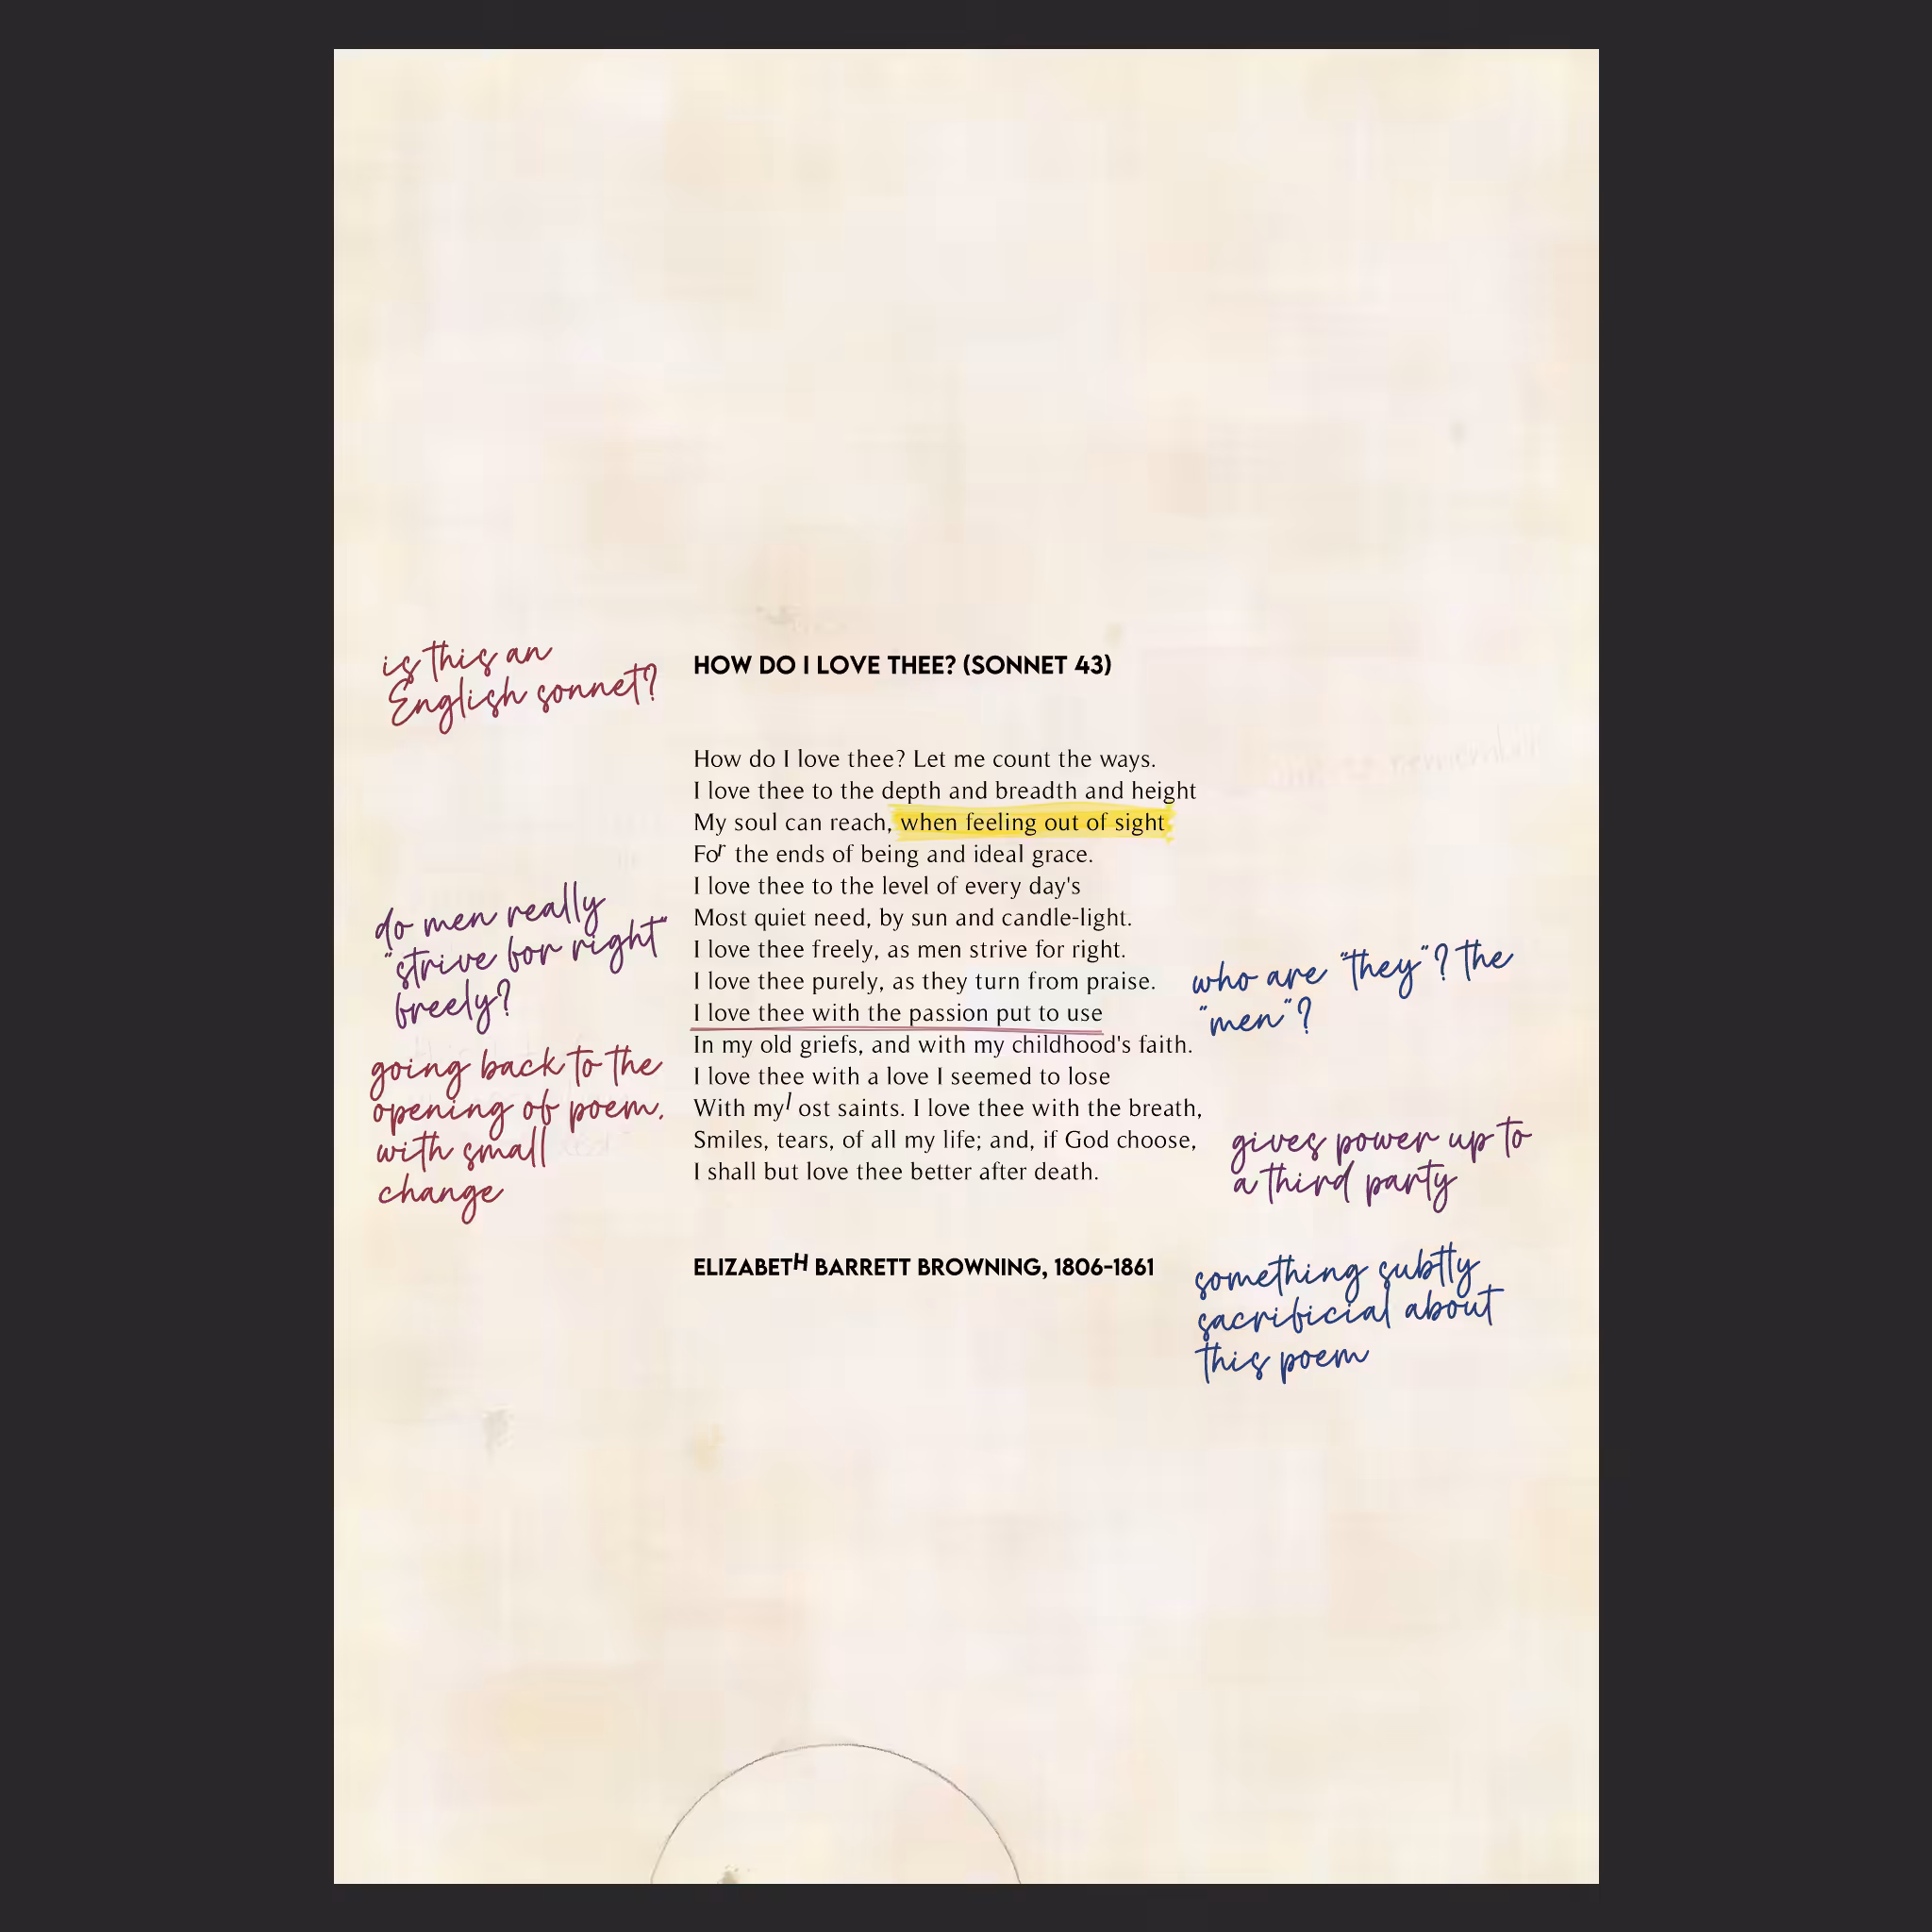 is this an
English sonnet?
HOW DO I LOVE THEE? (SONNET 43)
How do I love thee? Let me count the ways.
I love thee to the depth and breadth and height
My soul can reach, when feeling out of sight
For the ends of being and ideal grace.
I love thee to the level of every day's
Most quiet need, by sun and candle-light.
I love thee freely, as men strive for right.
I love thee purely, as they turn from praise.
I love thee with the passion put to use
In my old griefs, and with my childhood's faith.
I love thee with a love I seemed to lose
With my lost saints. I love thee with the breath,
Smiles, tears, of all my life; and, if God choose,
I shall but love thee better after death.
ELIZABETH BARRETT BROWNING, 1806-1861
do men really
"strive for right"
freely?
going back to the
opening of poem.
with small
change
who are "they"? the
"men"?
gives power up to
a third party
something subtly
sacrificial about
this poem